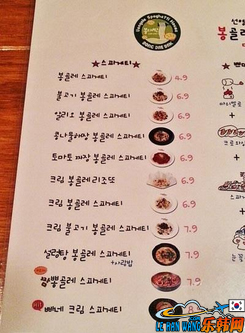 Vongole Spaghetti House
★스파게티★
봉골레 스파게티 4.9
불고기 봉골레 스파게티 6.9
알리오 봉골레 스파게티 6.9
콩나물해장 봉골레 스파게티 6.9
토마토 짜장 봉골레 스파게티 6.9
크림 봉골레 리조또 6.9
크림 봉골레 스파게티 6.9
크림 불고기 봉골레 스파게티 7.9
설렁탕 봉골레 스파게티 7.9
+사리밥
짬뽕 봉골레 스파게티 7.9
빠네 크림 스파게티
봉골
+
+
LE HAN WANG 乐韩网